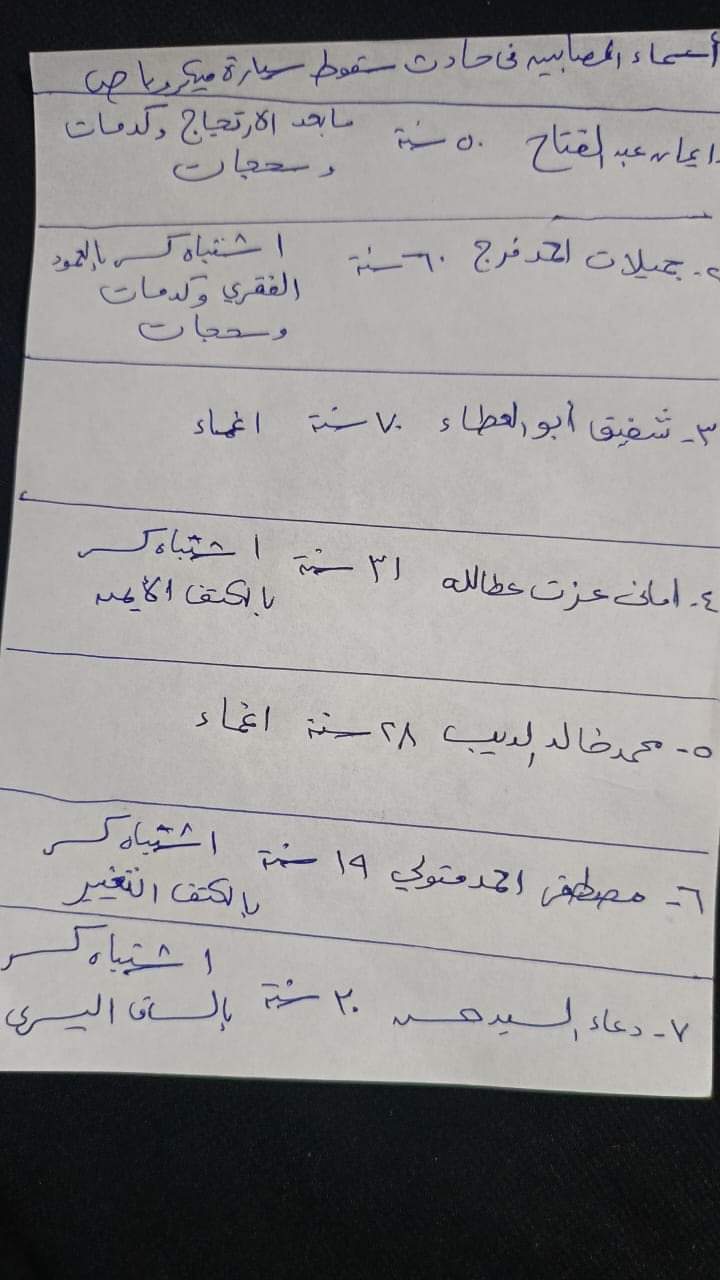 أسماء المصابين فى حادث سقوط سيارة ميكروباص
ايمان عبد الفتاح ٥٠ سنة ما بعد الارتجاج وكدمات
وسحجات
٢- جميلات احمد فرج ٦٠ سنة اشتباه كسر بالعمود
الفقري وكدمات
وسحجات
٣- شفيق أبو العطاء ٧٠ سنة اغماء
٤- امانى عزت عطالله ٣١ سنة اشتباه كسر
بالكتف الأيمن
٥- محمد خالد الديب ٢٨ سنة اغماء
٦- مصطفى احمد متولي ١٩ سنة اشتباه كسر
بالكتف
٧- دعاء السيد حسن ٢٠ سنة اشتباه كسر
بالساق اليسرى